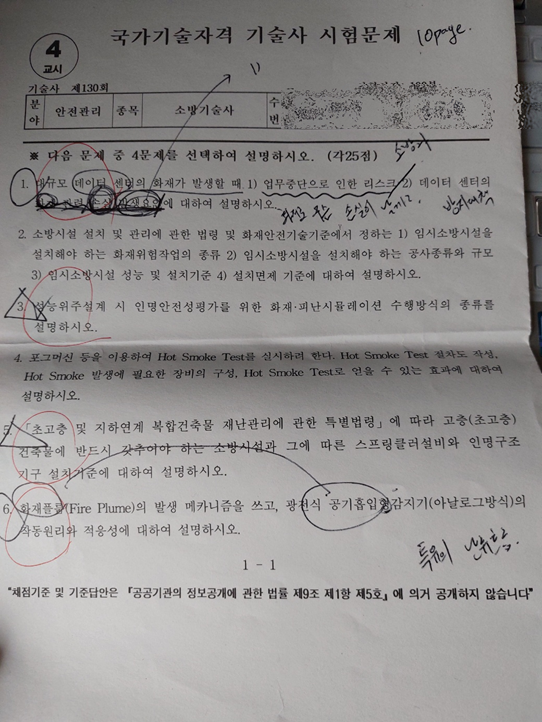 4
교시
국가기술자격 기술사 시험문제 10page.
기술사 제130회
분야 안전관리 종목 소방기술사 수 번
※ 다음 문제 중 4문제를 선택하여 설명하시오. (각25점)
1. 대규모 데이터 센터의 화재가 발생할 때 1) 업무중단으로 인한 리스크 2) 데이터 센터의
손상 발생요인에 대하여 설명하시오.
2. 소방시설 설치 및 관리에 관한 법령 및 화재안전기술기준에서 정하는 1) 임시소방시설을
설치해야 하는 화재위험작업의 종류 2) 임시소방시설을 설치해야 하는 공사종류와 규모
3) 임시소방시설 성능 및 설치기준 4) 설치면제 기준에 대하여 설명하시오.
3. 성능위주설계 시 인명안전성평가를 위한 화재·피난시뮬레이션 수행방식의 종류를
설명하시오.
4. 포그머신 등을 이용하여 Hot Smoke Test를 실시하려 한다. Hot Smoke Test 절차도 작성,
Hot Smoke 발생에 필요한 장비의 구성, Hot Smoke Test로 얻을 수 있는 효과에 대하여
설명하시오.
5. 「초고층 및 지하연계 복합건축물 재난관리에 관한 특별법령」에 따라 고층(초고층)
건축물에 반드시 갖추어야 하는 소방시설과 그에 따른 스프링클러설비와 인명구조
기구 설치기준에 대하여 설명하시오.
6. 화재플룸(Fire Plume)의 발생 메카니즘을 쓰고, 광전식 공기흡입형감지기(아날로그방식)의
작동원리와 적응성에 대하여 설명하시오.
1 - 1
"채점기준 및 기준답안은 『공공기관의 정보공개에 관한 법률 제9조 제1항 제5호』에 의거 공개하지 않습니다"